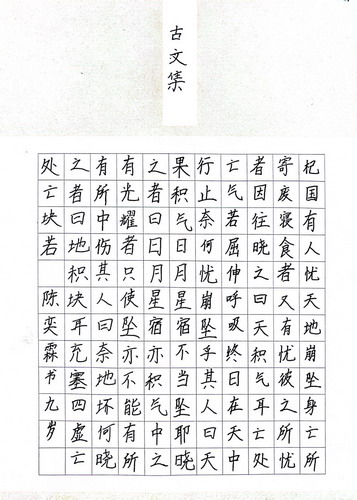 古文集
杞国有人忧天地崩坠身亡所
寄废寝食者又有忧彼之所忧
者因往晓之曰天积气耳亡处
亡气若屈伸呼吸终日在天中
行止奈何忧崩坠乎其人曰天
果积气日月星宿不当坠耶晓
之者曰日月星宿亦积气中之
有光耀者只使坠亦不能有所
有所中伤其人曰奈地坏何晓
之者曰地积块耳充塞四虚亡
处亡块若 陈奕霖书九岁